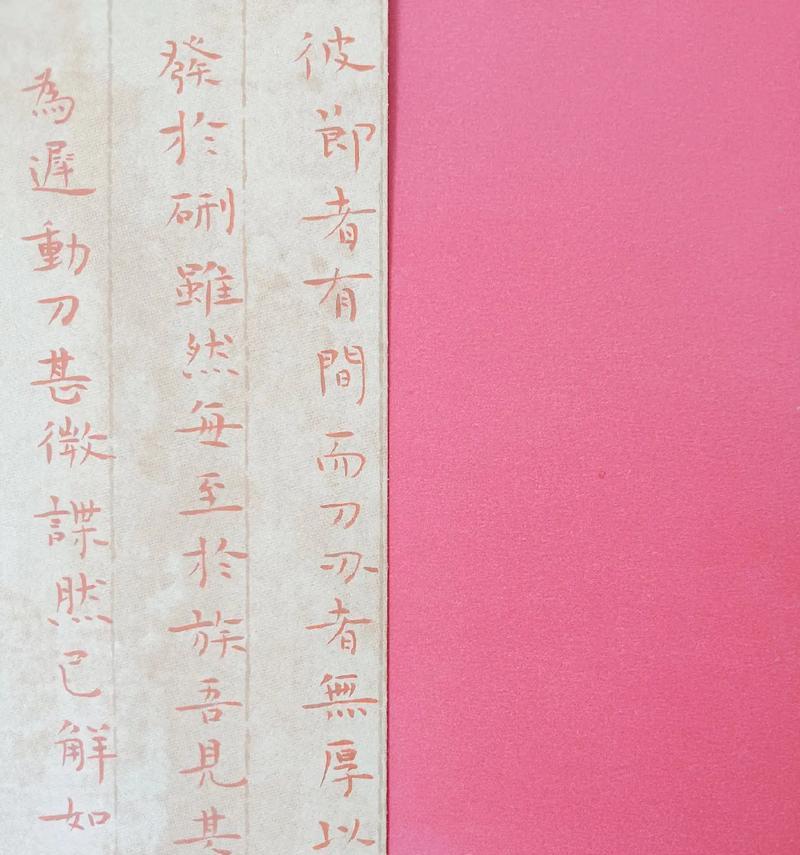 彼節者有間而刀刃者無厚以
發於硎雖然每至於族吾見其
為遲動刀甚微諜然已解如